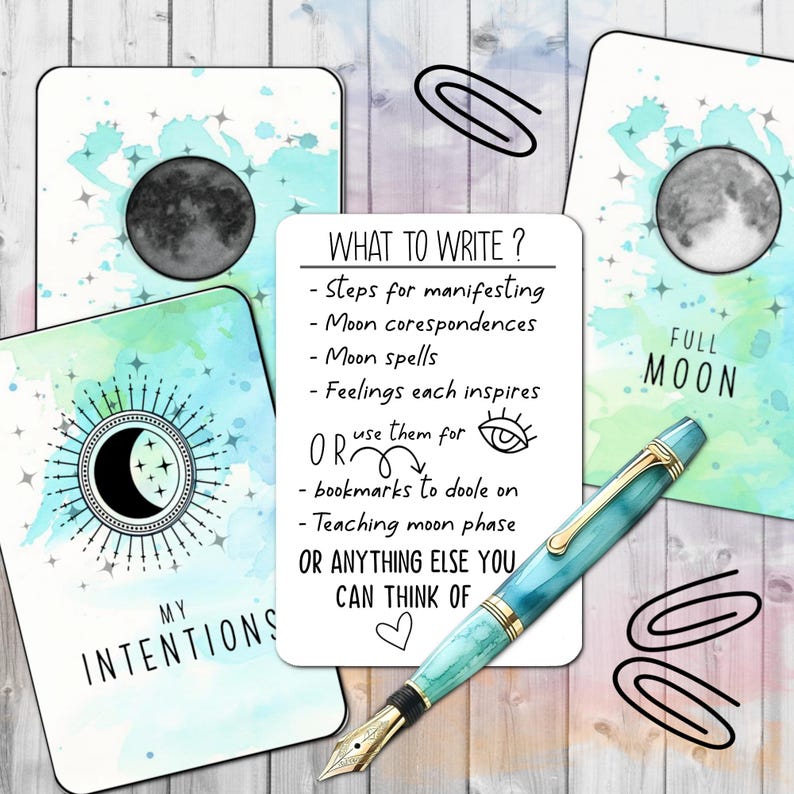 WHAT TO WRITE ?
- Steps for manifesting
- Moon corespondences
- Moon spells
- Feelings each inspires
OR use them for
- bookmarks to doole on
- Teaching moon phase
OR ANYTHING ELSE YOU
CAN THINK OF
FULL
MOON
MY
INTENTIONS